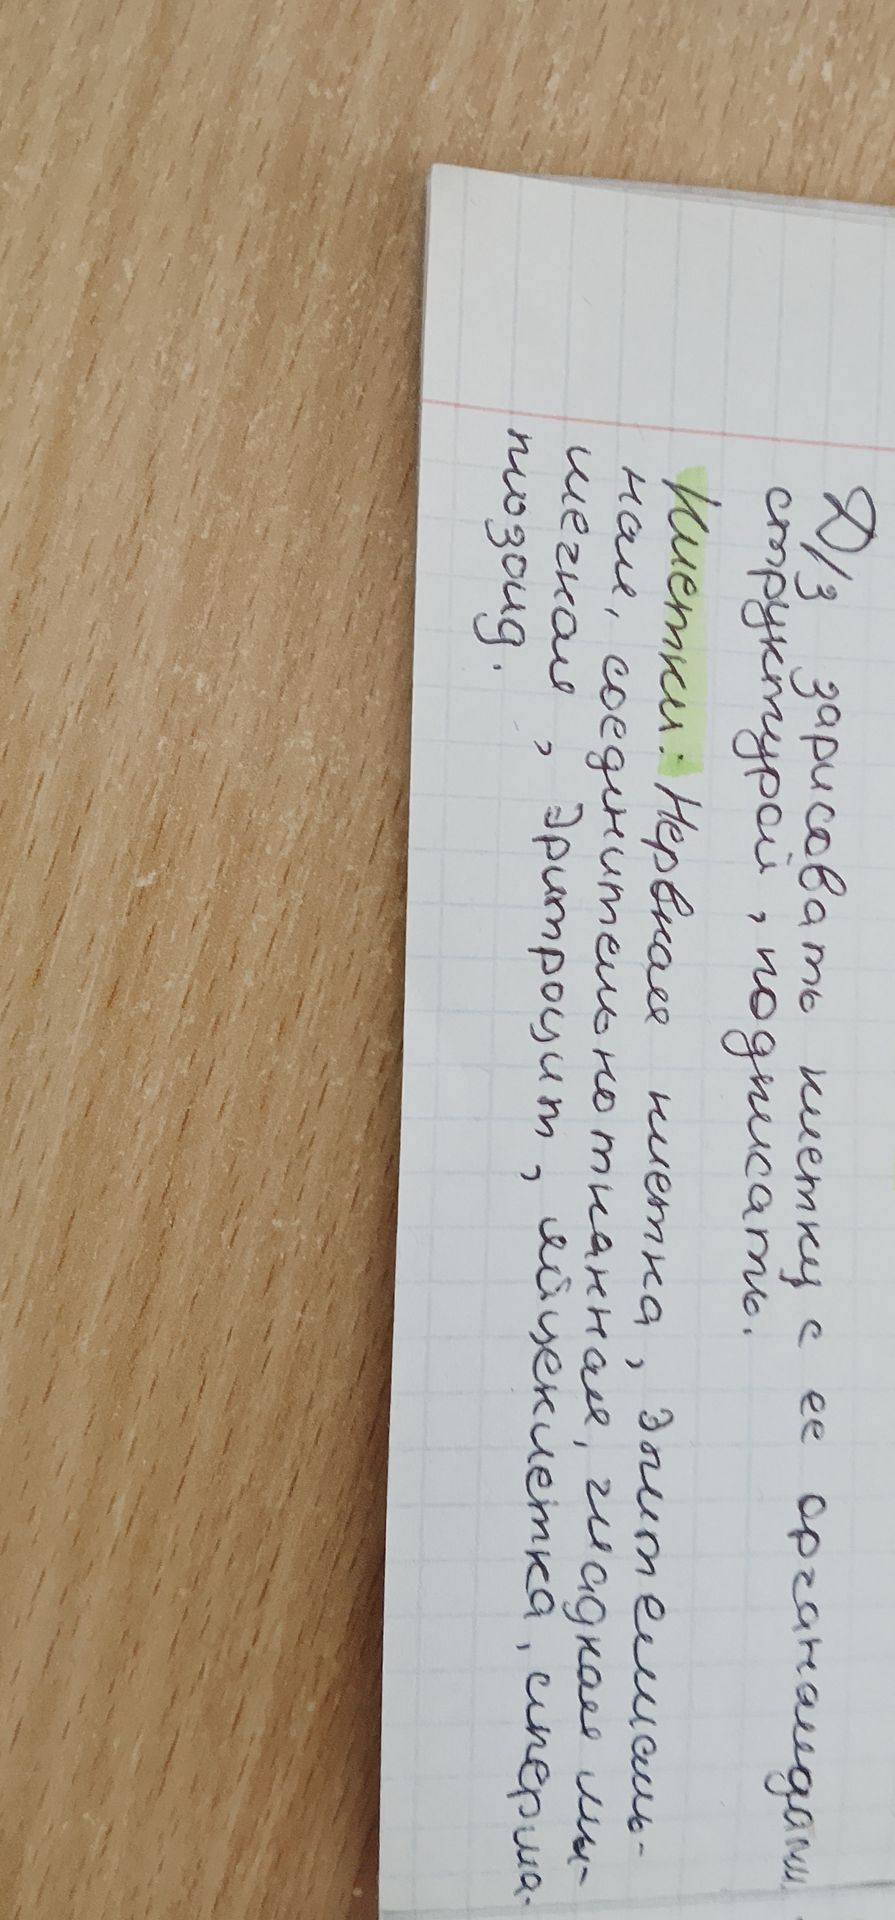 Д/з зарисовать клетку с ее органоидами,
структурой, подписать.
Клетки: Нервная клетка, эпителиаль-
ная, соединительнотканная, гладкая мы-
шечная, эритроцит, яйцеклетка, сперма-
тозоид.